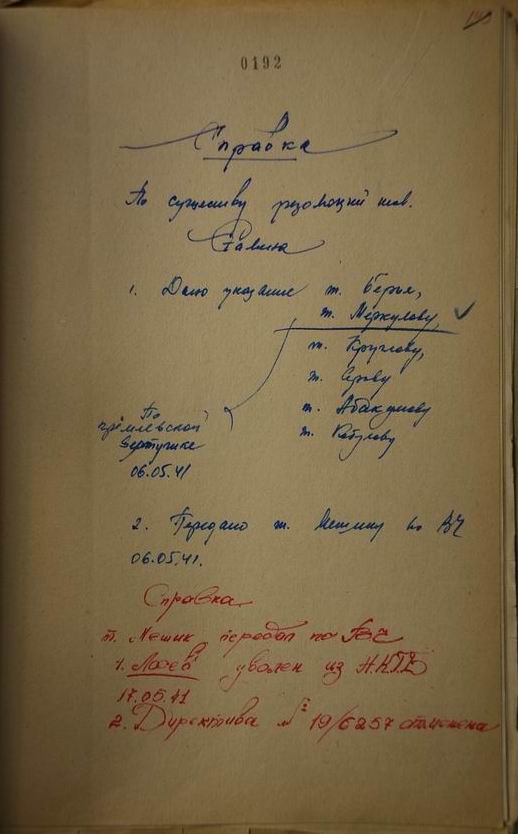 0192
Справка
По существу резолюций тов.
Сталина
1. Дано указание т. Берия,
т. Меркулову,
т. Круглову,
т. Серову
т. Абакумову
т. Кобулову
По
кремлевской
вертушке
06.05.41
2. Передано т. Мешику по ВЧ
06.05.41.
Справка
т. Мешик передал по ВЧ
1. уволен из НКГБ
17.05.41
2. Директива № 19/6257 отменена